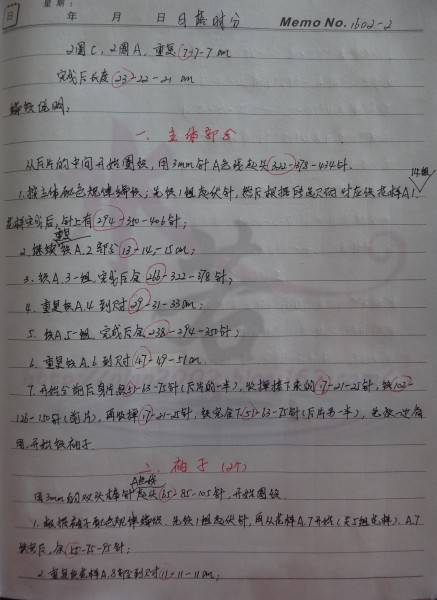 星期:
年 月 日 日 时分 Memo No. 1602-2
2圈C, 2圈A, 重复(7)-7-7cm
完成后长度(23)-22-21cm
编织说明:
一. 主体部分
从后片的中间开始圈织, 用3mm针A色线起头(322)-378-434针.
1. 按主体配色规律编织; 先织1组起伏针, 然后根据段落尺码对应织花样A.1.
14组
花样完后, 针上有(294)-350-406针;
重复
2. 继续织A.2部分(13)-14-15cm;
3. 织A.3一组, 完成后余(266)-322-378针;
4. 重复织A.4到尺寸(29)-31-33cm;
5. 织A.5一组, 完成后余(238)-294-350针;
6. 重复织A.6到尺寸(47)-49-51cm.
7. 开始分前后身片, (51)-63-75针(后片的一半), 收掉接下来的(17)-21-25针, 织(102)-
126-150针(前片), 再收掉(17)-21-25针, 织完余下(51)-63-75针(后片另一半), 先放一边备
用, 开始织袖子.
二. 袖子(2个)
A色线
用3mm的双头棒针起头(65)-85-105针, 开始圈织.
1. 根据袖子配色规律编织, 先织1组起伏针, 再从花样A.7开始(共5组花样), A.7
织完后, 余(55)-75-95针;
2. 重复织花样A.8部分到尺寸11-11-11cm;